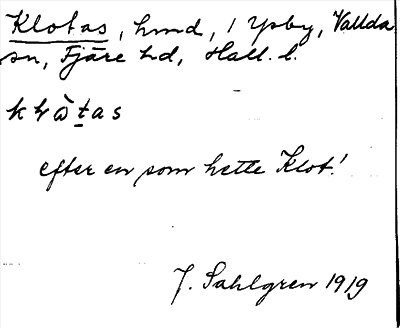 Klotas, hund, / Ysby, Vallda
sn, Fjäre hd, Hall. l.
efter en som hette Klot!
J. Sahlgren 1919